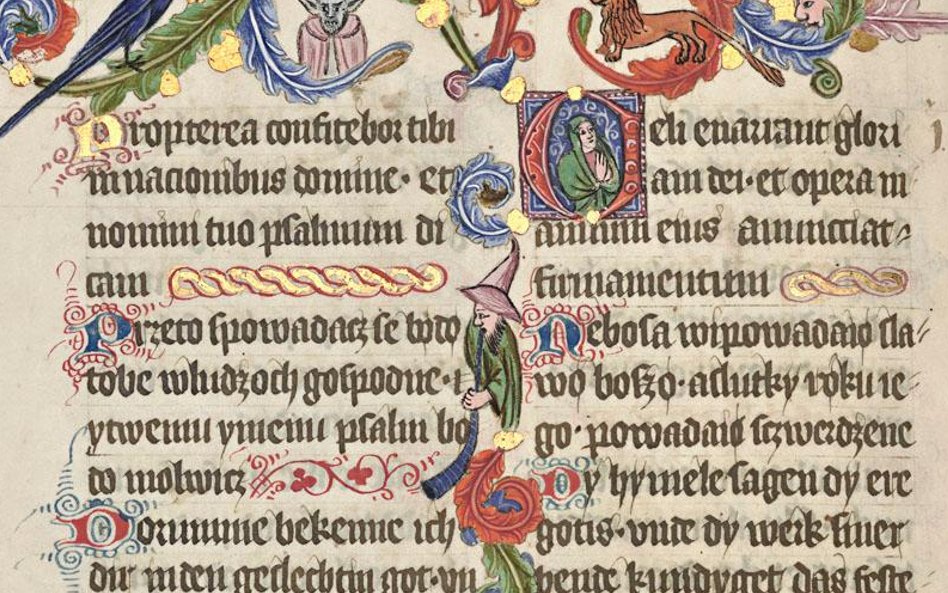 Propterea confitebor tibi
in nacionibus domine · et
nomini tuo psalmum di
cam
Przeto spowadacz se bødø
tobe wludzoch gospodne · i
ytwemu ymenu psalm bø
dø molwicz
Dorumme bekenne ich
dir in den geslechtin got · vn
Celi enarrant glori
am dei · et opera m
anuum eius annunctiat⸗
firmamentum
Nebosa wipowadaiø sla⸗
wø boszø · aslutky røku ie⸗
go · powadaiø sczwerdzene
Dy hymele sagen dy ere
gotis · vnde dy werk siner
hende kundyget das feste